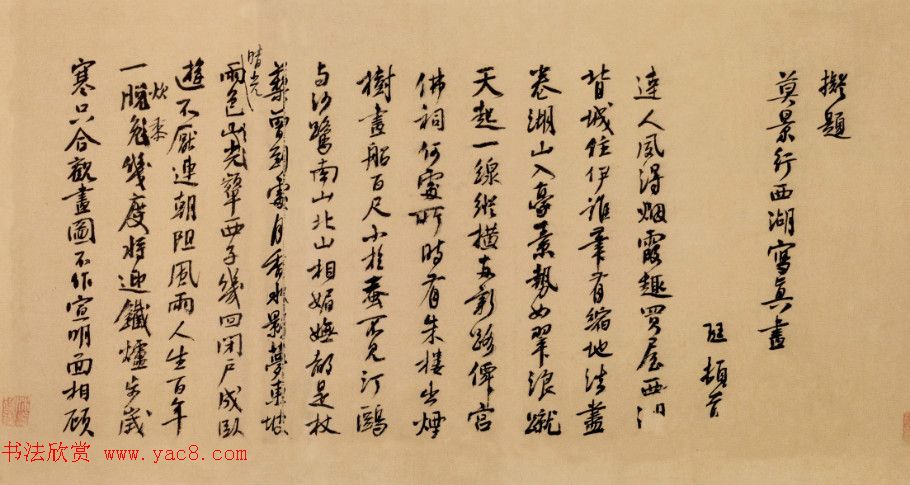 擬題
莫景行西湖寫真畫
頓首
達人風得烟霞趣買屋西湖
背城住伊誰筆有縮地法盡
卷湖山入豪素勢如翠浪蹴
天起一線縱横支彩路俾宫
佛祠何處所時有朱樓出煙
樹畫船百尺小於蚕不見汀鷗
与沙鷺南山北山相媚嫵都是杖
藜曾到處月香水影夢東坡
晴光
雨色山光 西子幾回閉戶成臥
遊不厭連朝阻風雨人生百年
一 幾度將迎鐵爐步歲
炊黍
寒只合觀畫圖不作宣明面相顧
书法欣赏 www.yac8.com